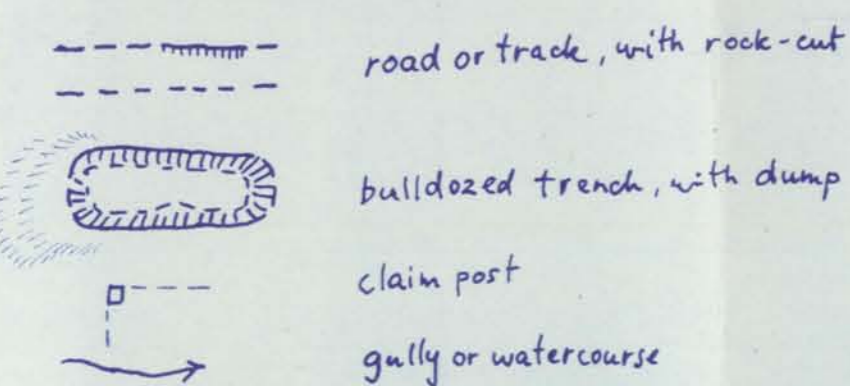 road or track, with rock-cut
bulldozed trench, with dump
claim post
gully or watercourse